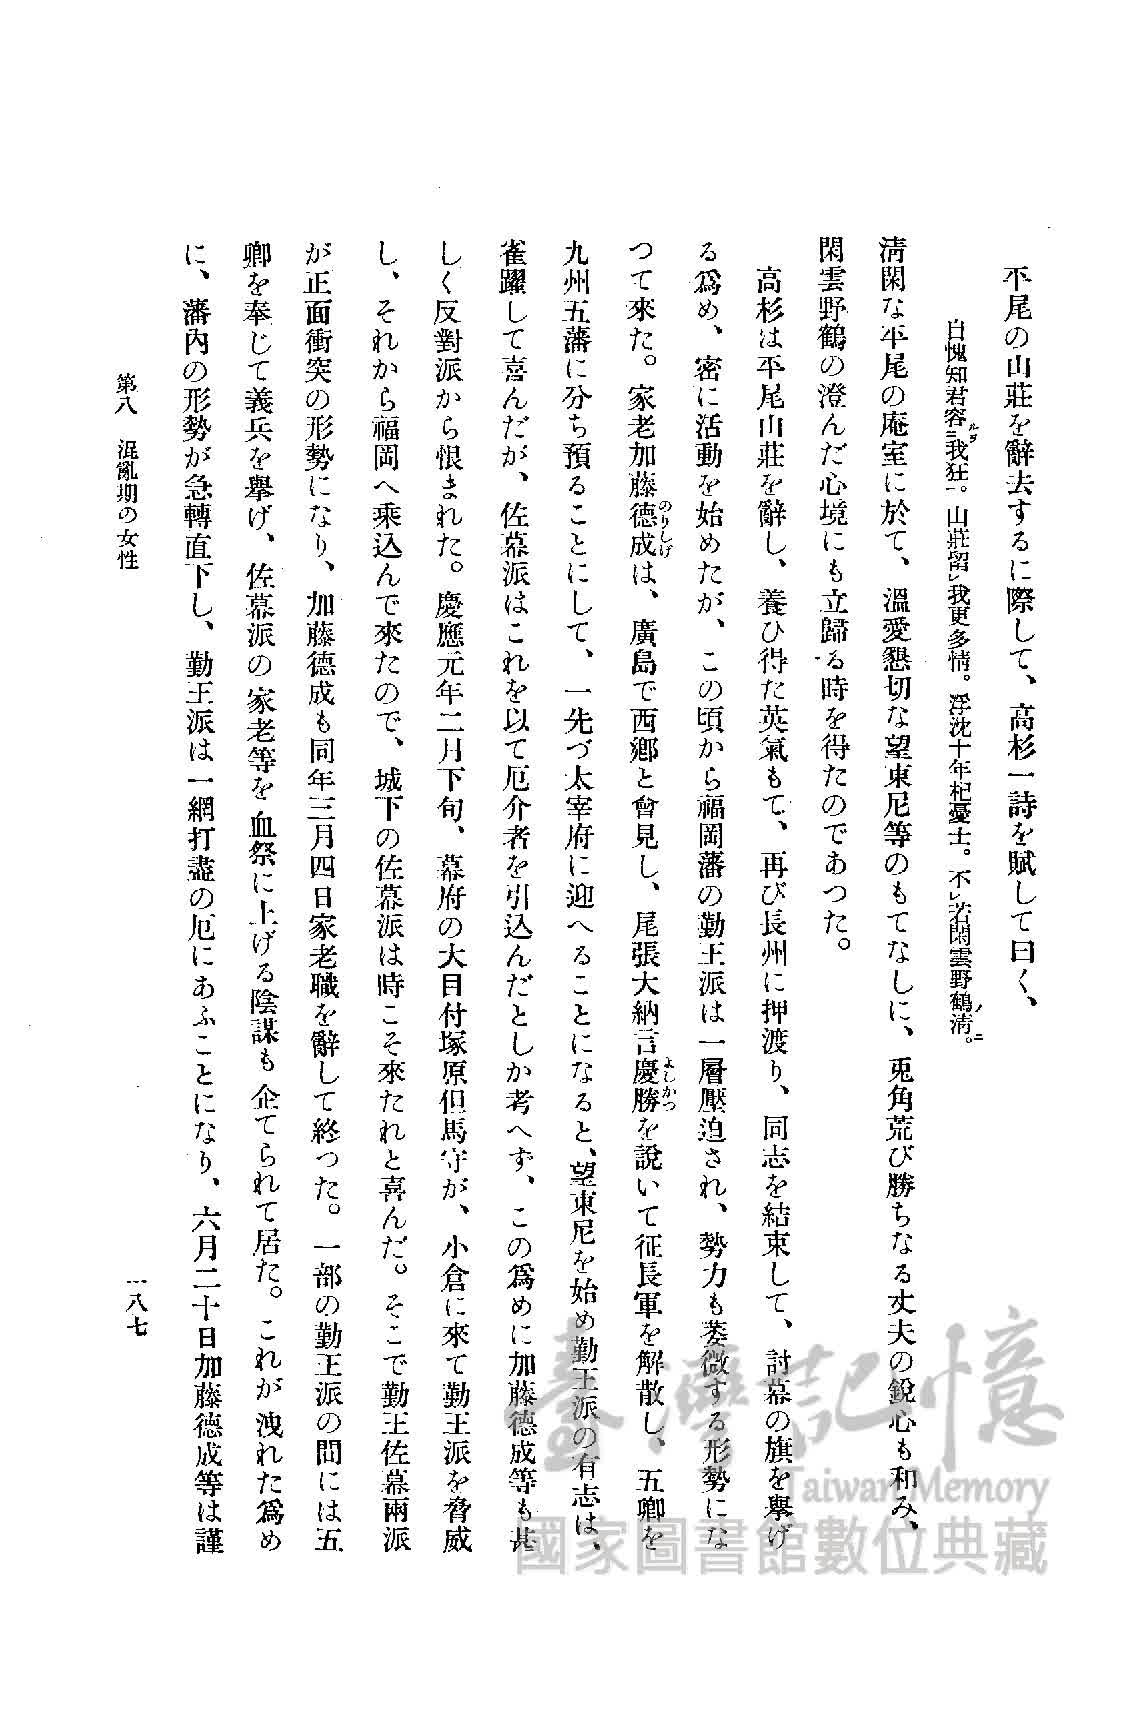 平尾の山莊を辭去するに際して、高杉一詩を賦して曰く、
自愧知君容ルヲ二我狂一。山莊留レ我更多情。浮沈十年杞憂士。不レ若閑雲野鶴ノ淸ニ。
淸閑な平尾の庵室に於て、溫愛懇切な望東尼等のもてなしに、兎角荒び勝ちなる丈夫の銳心も和み、
閑雲野鶴の澄んだ心境にも立歸る時を得たのであつた。
高杉は平尾山莊を辭し、養ひ得た英氣もて、再び長州に押渡り、同志を結束して、討幕の旗を擧げ
る爲め、密に活動を始めたが、この頃から福岡藩の勤王派は一層壓迫され、勢力も萎微する形勢にな
つて來た。家老加藤德成のりしげは、廣島で西鄕と會見し、尾張大納言慶勝よしかつを說いて征長軍を解散し、五卿を
九州五藩に分ち預ることにして、一先づ太宰府に迎へることになると、望東尼を始め勤王派の有志は、
雀躍して喜んだが、佐幕派はこれを以て厄介者を引込んだとしか考へず、この爲めに加藤德成等も甚
しく反對派から恨まれた。慶應元年二月下旬、幕府の大目付塚原但馬守が、小倉に來て勤王派を脅威
し、それから福岡へ乘込んで來たので、城下の佐幕派は時こそ來たれと喜んだ。そこで勤王佐幕兩派
が正面衝突の形勢になり、加藤德成も同年三月四日家老職を辭して終つた。一部の勤王派の間には五
卿を奉じて義兵を擧げ、佐幕派の家老等を血祭に上げる陰謀も企てられて居た。これが洩れた爲め
に、藩內の形勢が急轉直下し、勤王派は一網打盡の厄にあふことになり、六月二十日加藤德成等は謹
第八 混亂期の女性
一八七
臺灣記憶
Taiwan Memory
國家圖書館數位典藏